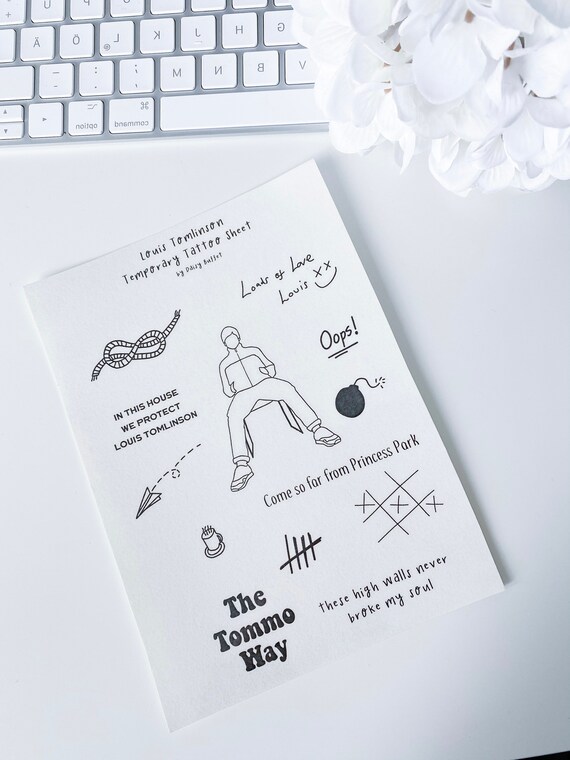 Ä Ö L K J H
- : ; M N B V
option command
Louis Tomlinson
Temporary Tattoo Sheet
by Daisy Bullet
Loads of Love
Louis xx
Oops!
IN THIS HOUSE
WE PROTECT
LOUIS TOMLINSON
Come so far from Princess Park
The
Tommo
Way
these high walls never
broke my soul